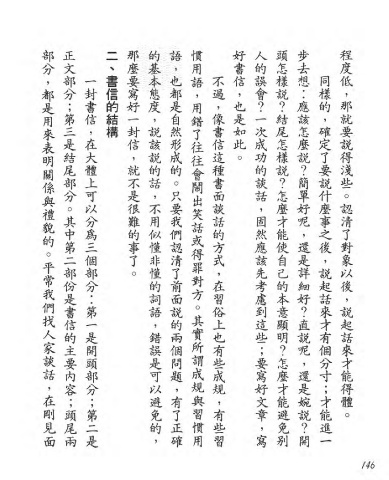 程度低，那就要說得淺些。認清了對象以後，說起話來才能得體。
同樣的，確定了要說什麼事之後，說起話來才有個分寸；才能進一
步去想：應該怎麼說？簡單好呢，還是詳細好？直說呢，還是婉說？開
頭怎樣說？結尾怎樣說？怎麼才能使自己的本意顯明？怎麼才能避免別
人的誤會？一次成功的談話，固然應該先考慮到這些；要寫好文章，寫
好書信，也是如此。
不過，像書信這種書面談話的方式，在習俗上也有些成規，有些習
慣用語，用錯了往往會鬧出笑話或得罪對方。其實所謂成規與習慣用
語，也都是自然形成的。只要我們認清了前面說的兩個問題，有了正確
的基本態度，說該說的話，不用似懂非懂的詞語，錯誤是可以避免的，
那麼要寫好一封信，就不是很難的事了。
二、書信的結構
一封書信，在大體上可以分為三個部分：第一是開頭部分；第二是
正文部分；第三是結尾部分。其中第二部份是書信的主要內容；頭尾兩
部分，都是用來表明關係與禮貌的。平常我們找人家談話，在剛見面
146